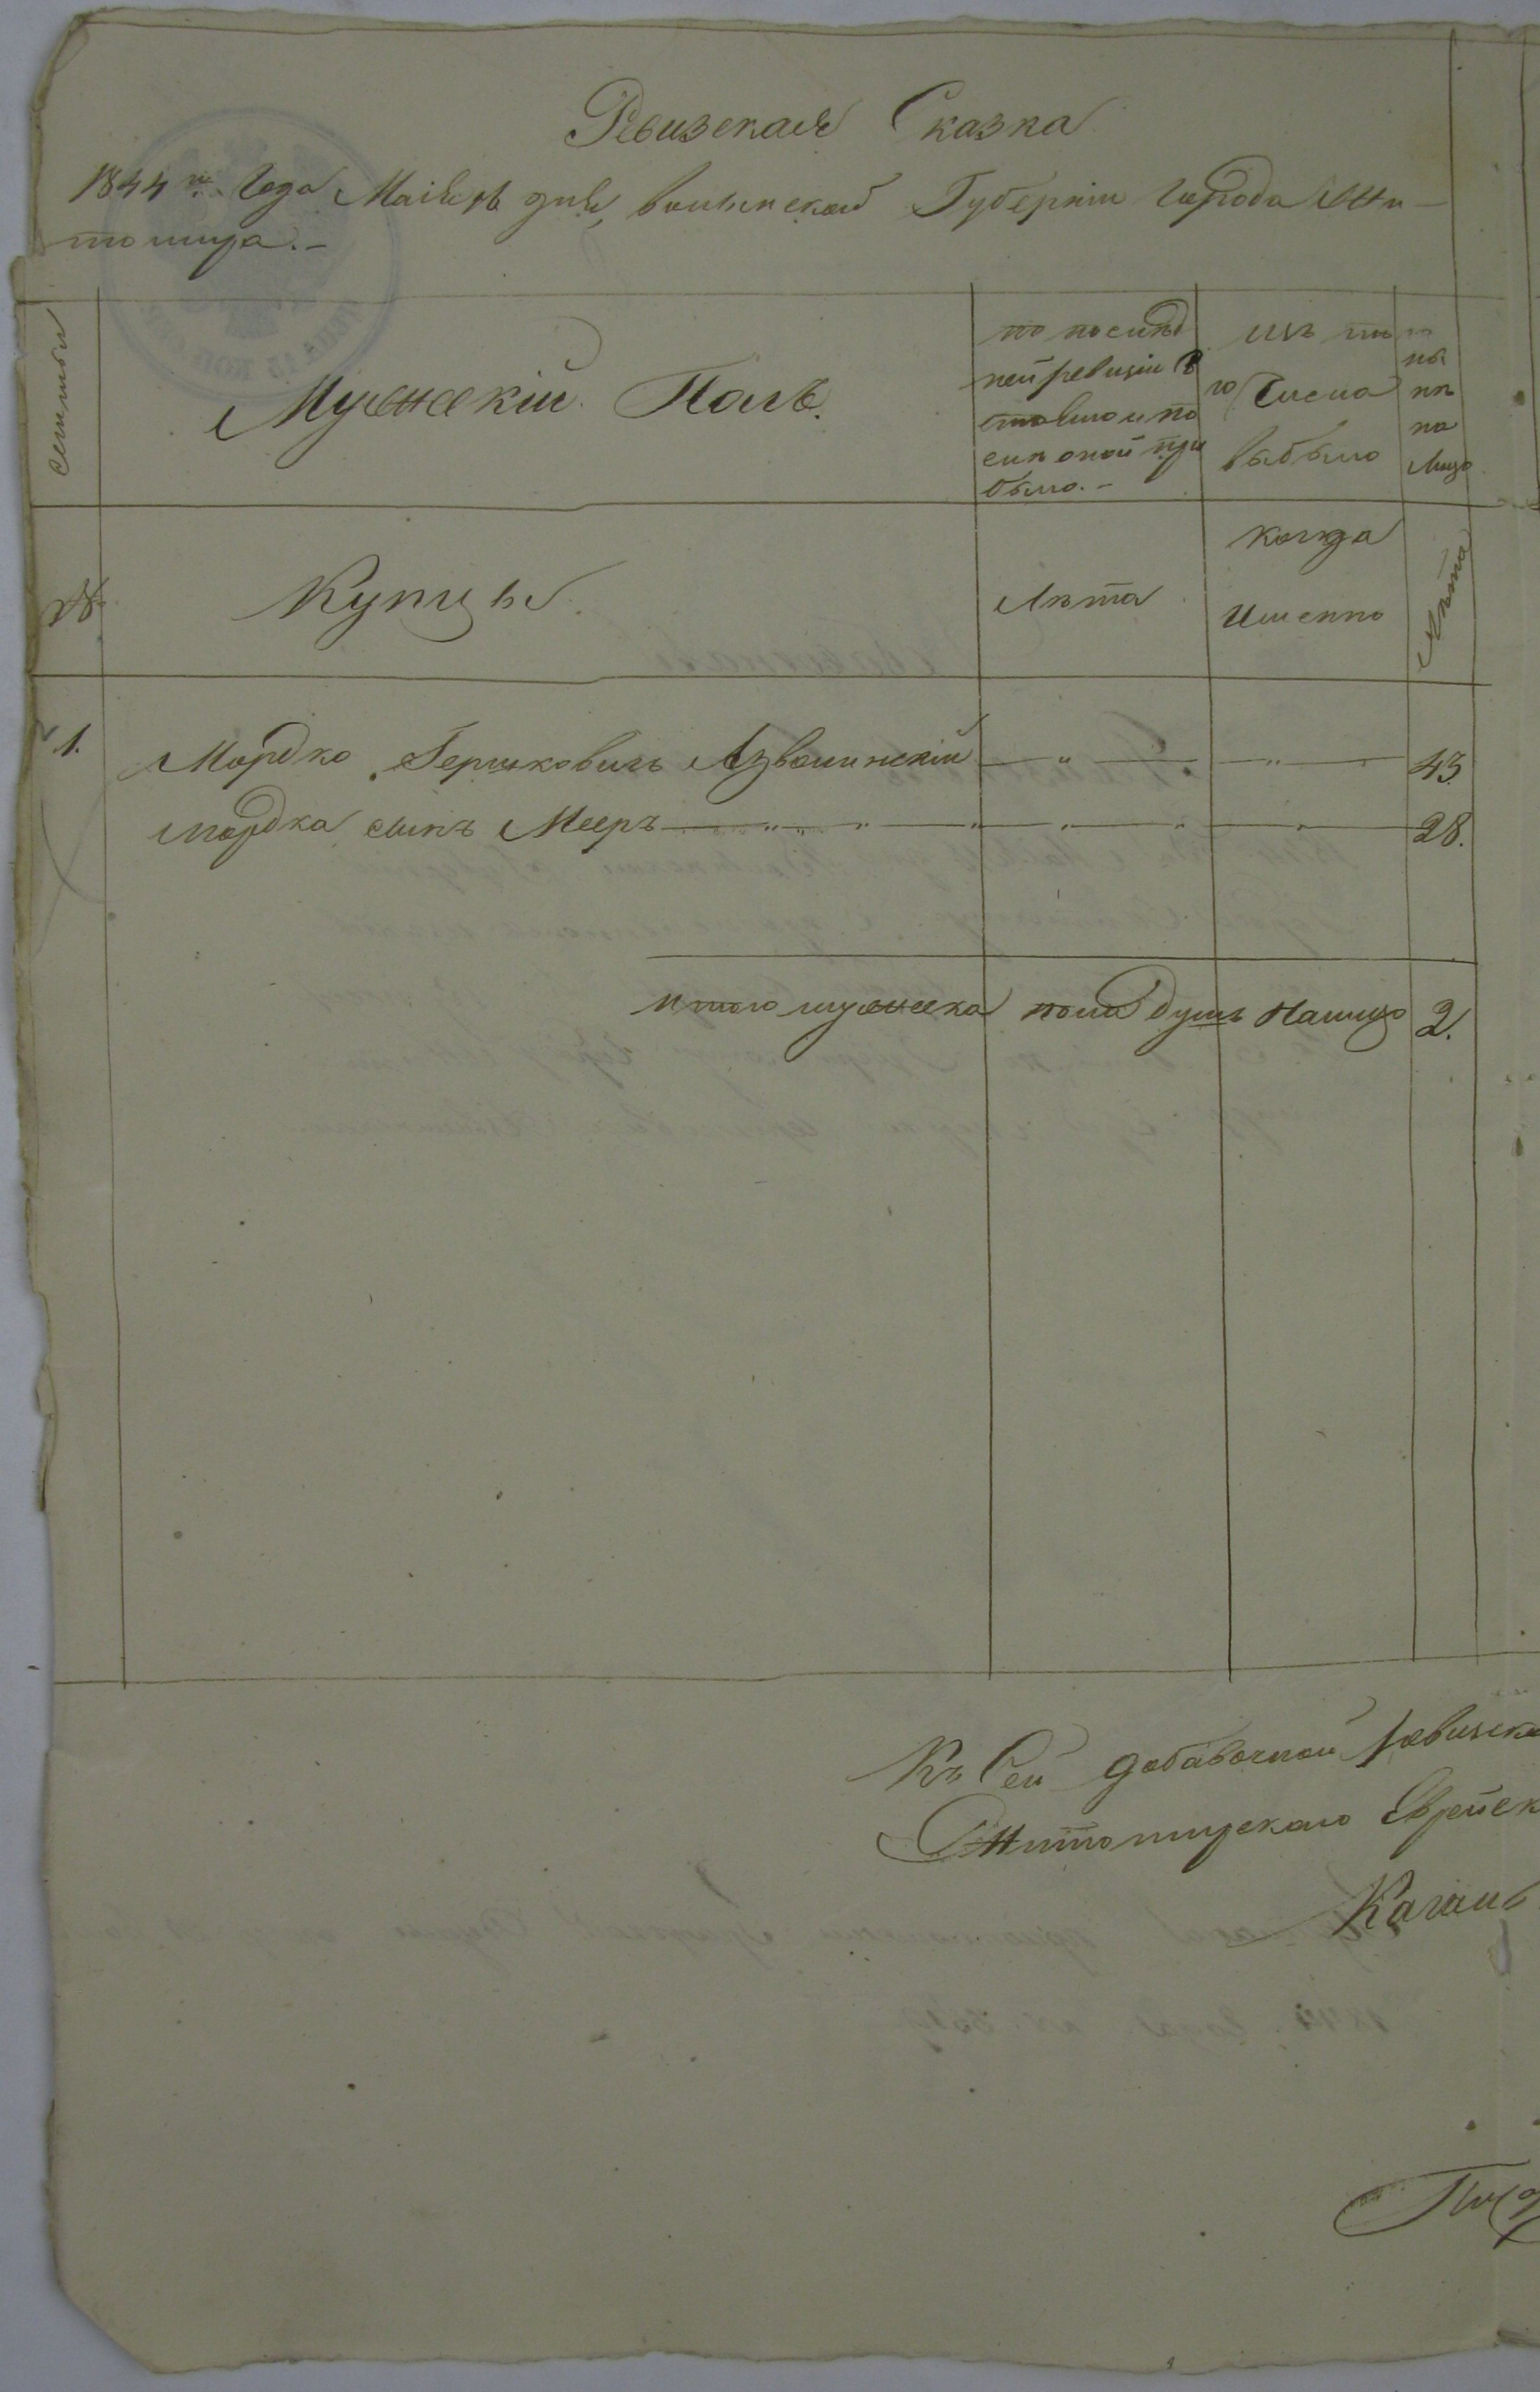 Ревизская Сказка
1844го Года Маія дня, волынской Губерніи города Жи-
томира.-
семьи
Мужескій Полъ.
по послѣд
ней ревизіи со
стояло и по
слѣ оной при
было.-
изъ то
го Числа
выбыло
ны
нѣ
на
Лицо
№
Купцы.
Лѣта
когда
Именно
Лѣта
1. Мордко Гершковичъ Азволинскій — " — — " — 43
Мордка сынъ Мееръ — " — " — " — " — 28.
итого мужеска пола душъ Налицо 2.
Къ Сей добавочной ревизско
Житомирскаго Еврейск
Кагаль